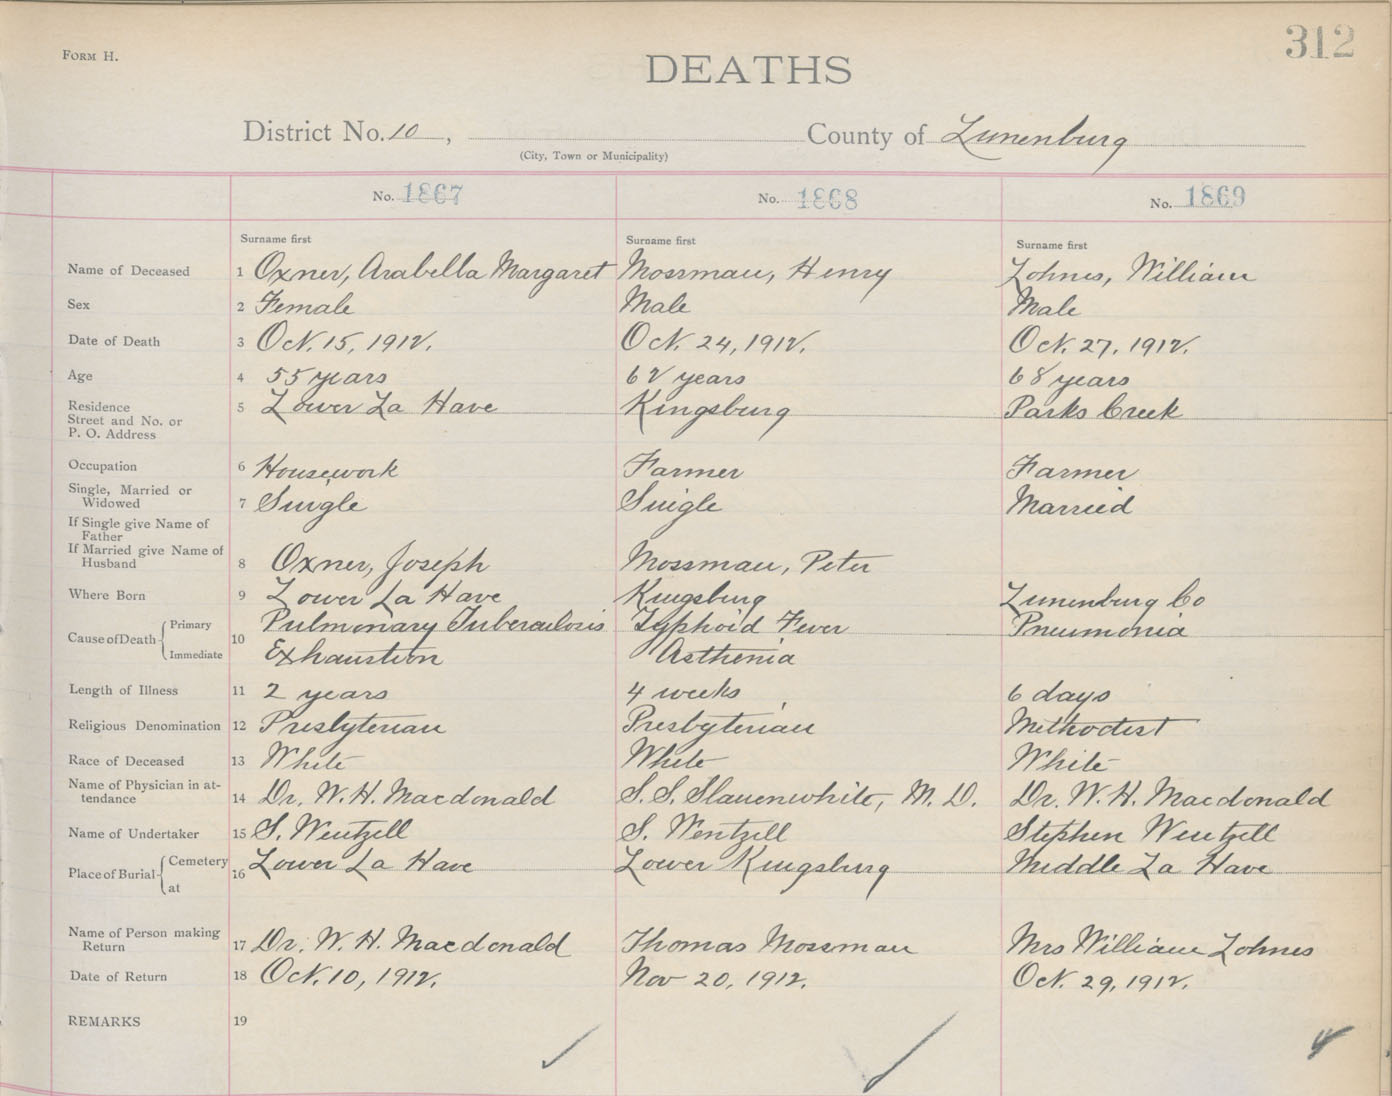 312
FORM H.
DEATHS
District No. 10, County of Lunenburg
(City, Town or Municipality)
No. 1867 No. 1868 No. 1869
Surname first Surname first Surname first
Name of Deceased 1 Oxner, Arabella Margaret Mossman, Henry Zohnes, William
Sex 2 Female Male Male
Date of Death 3 Oct. 15, 1912. Oct. 24, 1912. Oct. 27, 1912.
Age 4 55 years 62 years 68 years
Residence 5 Lower La Have Kingsburg Parks Creek
Street and No. or
P. O. Address
Occupation 6 Housework Farmer Farmer
Single, Married or
Widowed 7 Single Single Married
If Single give Name of
Father
If Married give Name of
Husband 8 Oxner, Joseph Mossman, Peter
Where Born 9 Lower La Have Kingsburg Lunenburg Co
Cause of Death Primary 10 Pulmonary Tuberculosis Typhoid Fever Pneumonia
Immediate Exhaustion Asthenia
Length of Illness 11 2 years 4 weeks 6 days
Religious Denomination 12 Presbyterian Presbyterian Methodist
Race of Deceased 13 White White White
Name of Physician in at-
tendance 14 Dr. W. H. Macdonald S. S. Slauenwhite, M. D. Dr. W. H. Macdonald
Name of Undertaker 15 S. Wentzell S. Wentzell Stephen Wentzell
Place of Burial Cemetery 16 Lower La Have Lower Kingsburg Middle La Have
at
Name of Person making
Return 17 Dr. W. H. Macdonald Thomas Mossman Mrs William Zohnes
Date of Return 18 Oct. 10, 1912. Nov 20, 1912. Oct. 29, 1912.
REMARKS 19